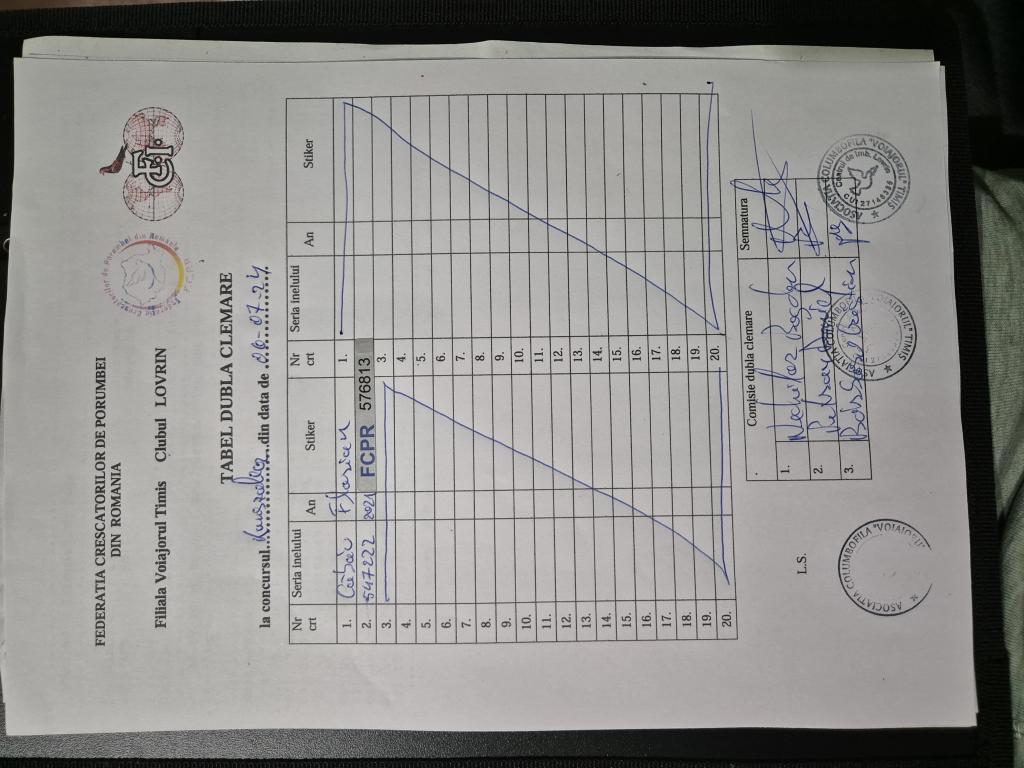 FEDERATIA CRESCATORILOR DE PORUMBEI
DIN ROMANIA
Filiala Voiajorul Timis Clubul LOVRIN
TABEL DUBLA CLEMARE
la concursul din data de 06-07-24
Nr crt Seria inelului An Stiker Nr crt Seria inelului An Stiker
1. Florian 1.
2. 547222 2021 FCPR 576813
3. 3.
4. 4.
5. 5.
6. 6.
7. 7.
8. 8.
9. 9.
10. 10.
11. 11.
12. 12.
13. 13.
14. 14.
15. 15.
16. 16.
17. 17.
18. 18.
19. 19.
20. 20.
L.S.
Comisie dubla clemare Semnatura
1.
2.
3.
ASOCIATIA COLUMBOFILA "VOIAJORUL"
ASOCIATIA COLUMBOFILA "VOIAJORUL" TIMIS
ASOCIATIA COLUMBOFILA "VOIAJORUL" TIMIS